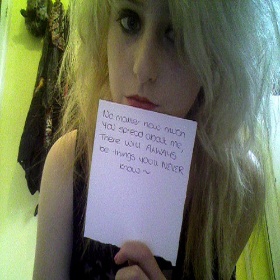 No matter how much
you spread about me,
There will ALWAYS
be things you'll NEVER
know~